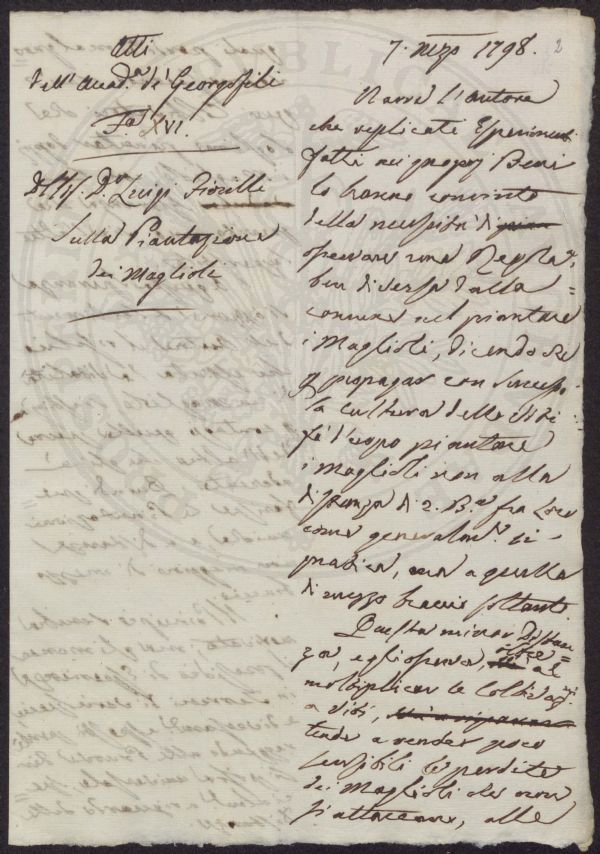 Atti
dell'Accad.a de' Georgofili
XVI.
Del Sig. D.r Luigi Fiorilli
Sulla Piantagione
dei Maglioli
7. 1798. 2
Narra l'Autore
che replicati Esperimenti
fatti nei proprj Beni
lo hanno convinto
della necessità di
osservare una Regola
ben diversa dalla
comune nel piantare
i Maglioli, dicendo che
p propagar con successo
la cultura delle Viti
fa d'uopo piantare
i Maglioli non alla
distanza di 2. B.a fra Loro
come generalm.e si
pratica, ma a quella
di mezzo braccio soltanto.
Questa minor Distan=
za, egli osserva, oltre al
moltiplicar le
a viti,
tende a render poco
sensibili le perdite
dei Maglioli che non
s'attaccano, alle